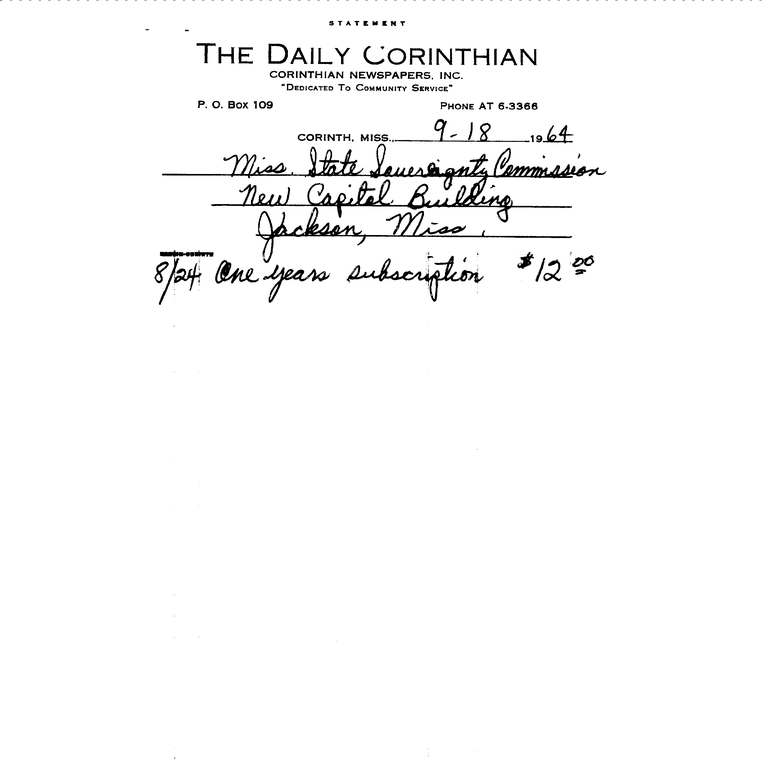 STATEMENT
THE DAILY CORINTHIAN
CORINTHIAN NEWSPAPERS, INC.
"DEDICATED TO COMMUNITY SERVICE"
P. O. BOX 109 PHONE AT 6-3366
CORINTH, MISS., 9-18 1964
Miss. State Sovereignty Commission
New Capitol Building
Jackson, Miss.
8/24 One years subscription $12 00